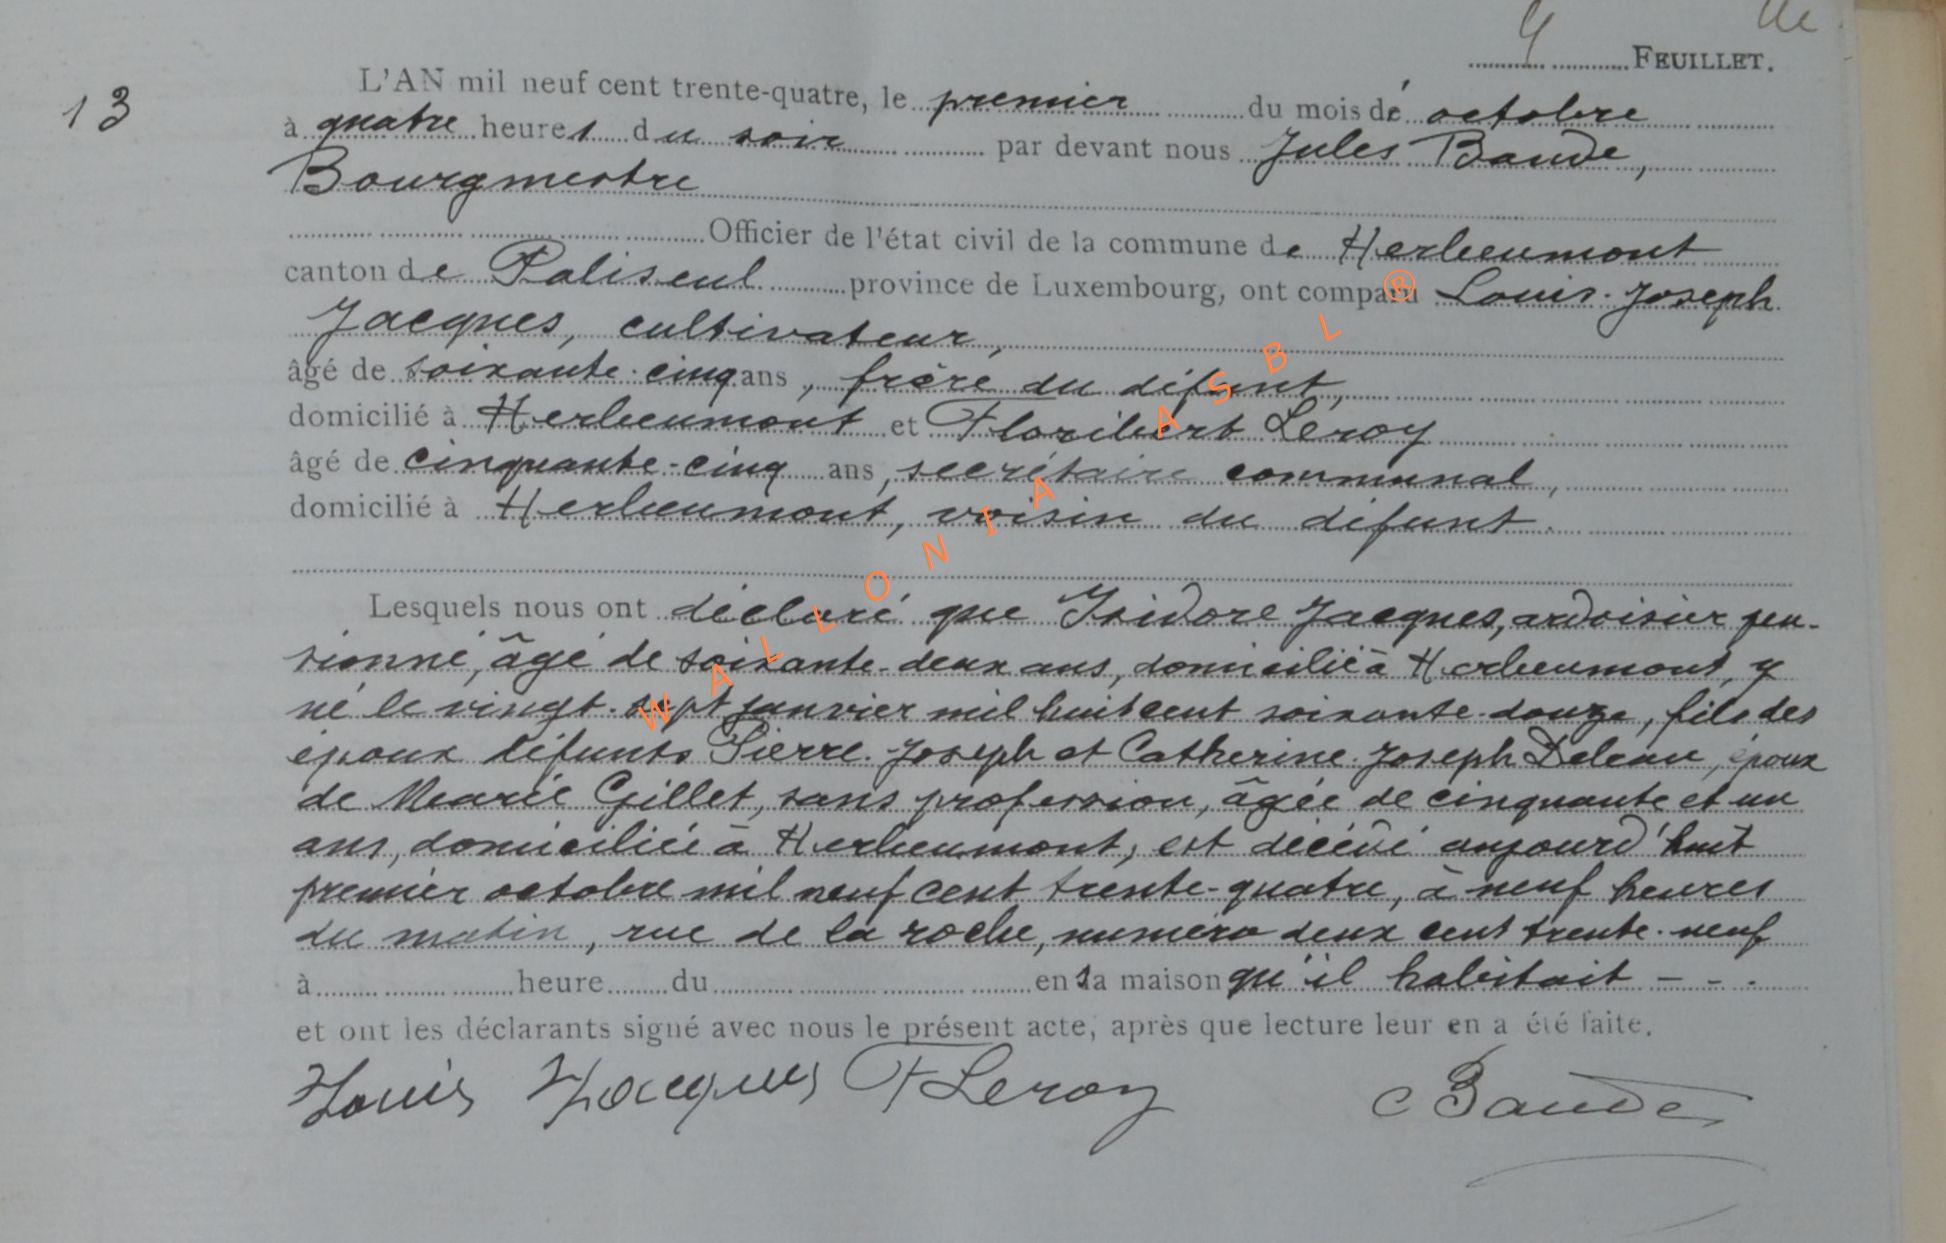 4 FEUILLET.
13
L'AN mil neuf cent trente-quatre, le premier du mois de octobre
à quatre heures du soir par devant nous Jules Baude,
Bourgmestre
Officier de l'état civil de la commune de Herbeumont
canton de Paliseul province de Luxembourg, ont comparu Louis-Joseph
Jacques, cultivateur,
âgé de soixante-cinq ans, frère du défunt,
domicilié à Herbeumont et Floribert Leroy
âgé de cinquante-cinq ans, secrétaire communal,
domicilié à Herbeumont, voisin du défunt.
Lesquels nous ont déclaré que Isidore Jacques, ardoisier pen-
sionné, âgé de soixante-deux ans, domicilié à Herbeumont, y
né le vingt-sept janvier mil huit cent soixante-douze, fils des
époux défunts Pierre-Joseph et Catherine-Joseph Deleau, époux
de Marie Gillet, sans profession, âgée de cinquante et un
ans, domiciliée à Herbeumont, est décédé aujourd'huit
premier octobre mil neuf cent trente-quatre, à neuf heures
du matin, rue de la roche, numéro deux cent trente-neuf
à heure du en sa maison qu'il habitait - - .
et ont les déclarants signé avec nous le présent acte, après que lecture leur en a été faite.
Louis Jacques F Leroy Baude
WALLONIA ASBL ®